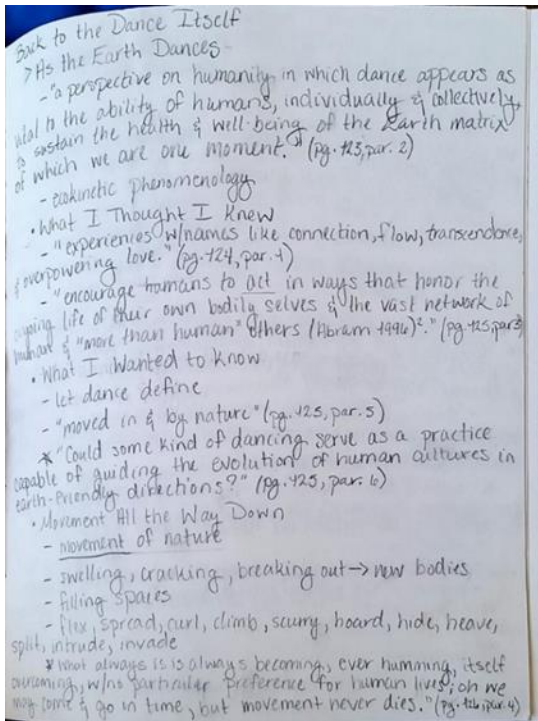 Back to the Dance Itself
> As the Earth Dances
- "a perspective on humanity in which dance appears as
vital to the ability of humans, individually & collectively,
to sustain the health & well-being of the Earth matrix
of which we are one moment." (pg. 123, par. 2)
- ecokinetic phenomenology
• What I Thought I Knew
- "experiences w/names like connection, flow, transcendence,
& overpowering love." (pg. 124, par. 1)
- "encourage humans to act in ways that honor the
ongoing life of their own bodily selves & the vast network of
human & "more than human" others (Abram 1996)²." (pg. 125, par 3)
• What I Wanted to Know
- let dance define
- "moved in & by nature" (pg. 125, par. 5)
* "Could some kind of dancing serve as a practice
capable of guiding the evolution of human cultures in
earth-friendly directions?" (pg. 125, par. 6)
• Movement All the Way Down
- movement of nature
- swelling, cracking, breaking out → new bodies
- filling spaces
- flex, spread, curl, climb, scurry, hoard, hide, heave,
split, intrude, invade
* "What always is is always becoming, ever humming, itself
overcoming, w/no particular preference for human lives; oh we
may come & go in time, but movement never dies." (pg. 126, par. 4)